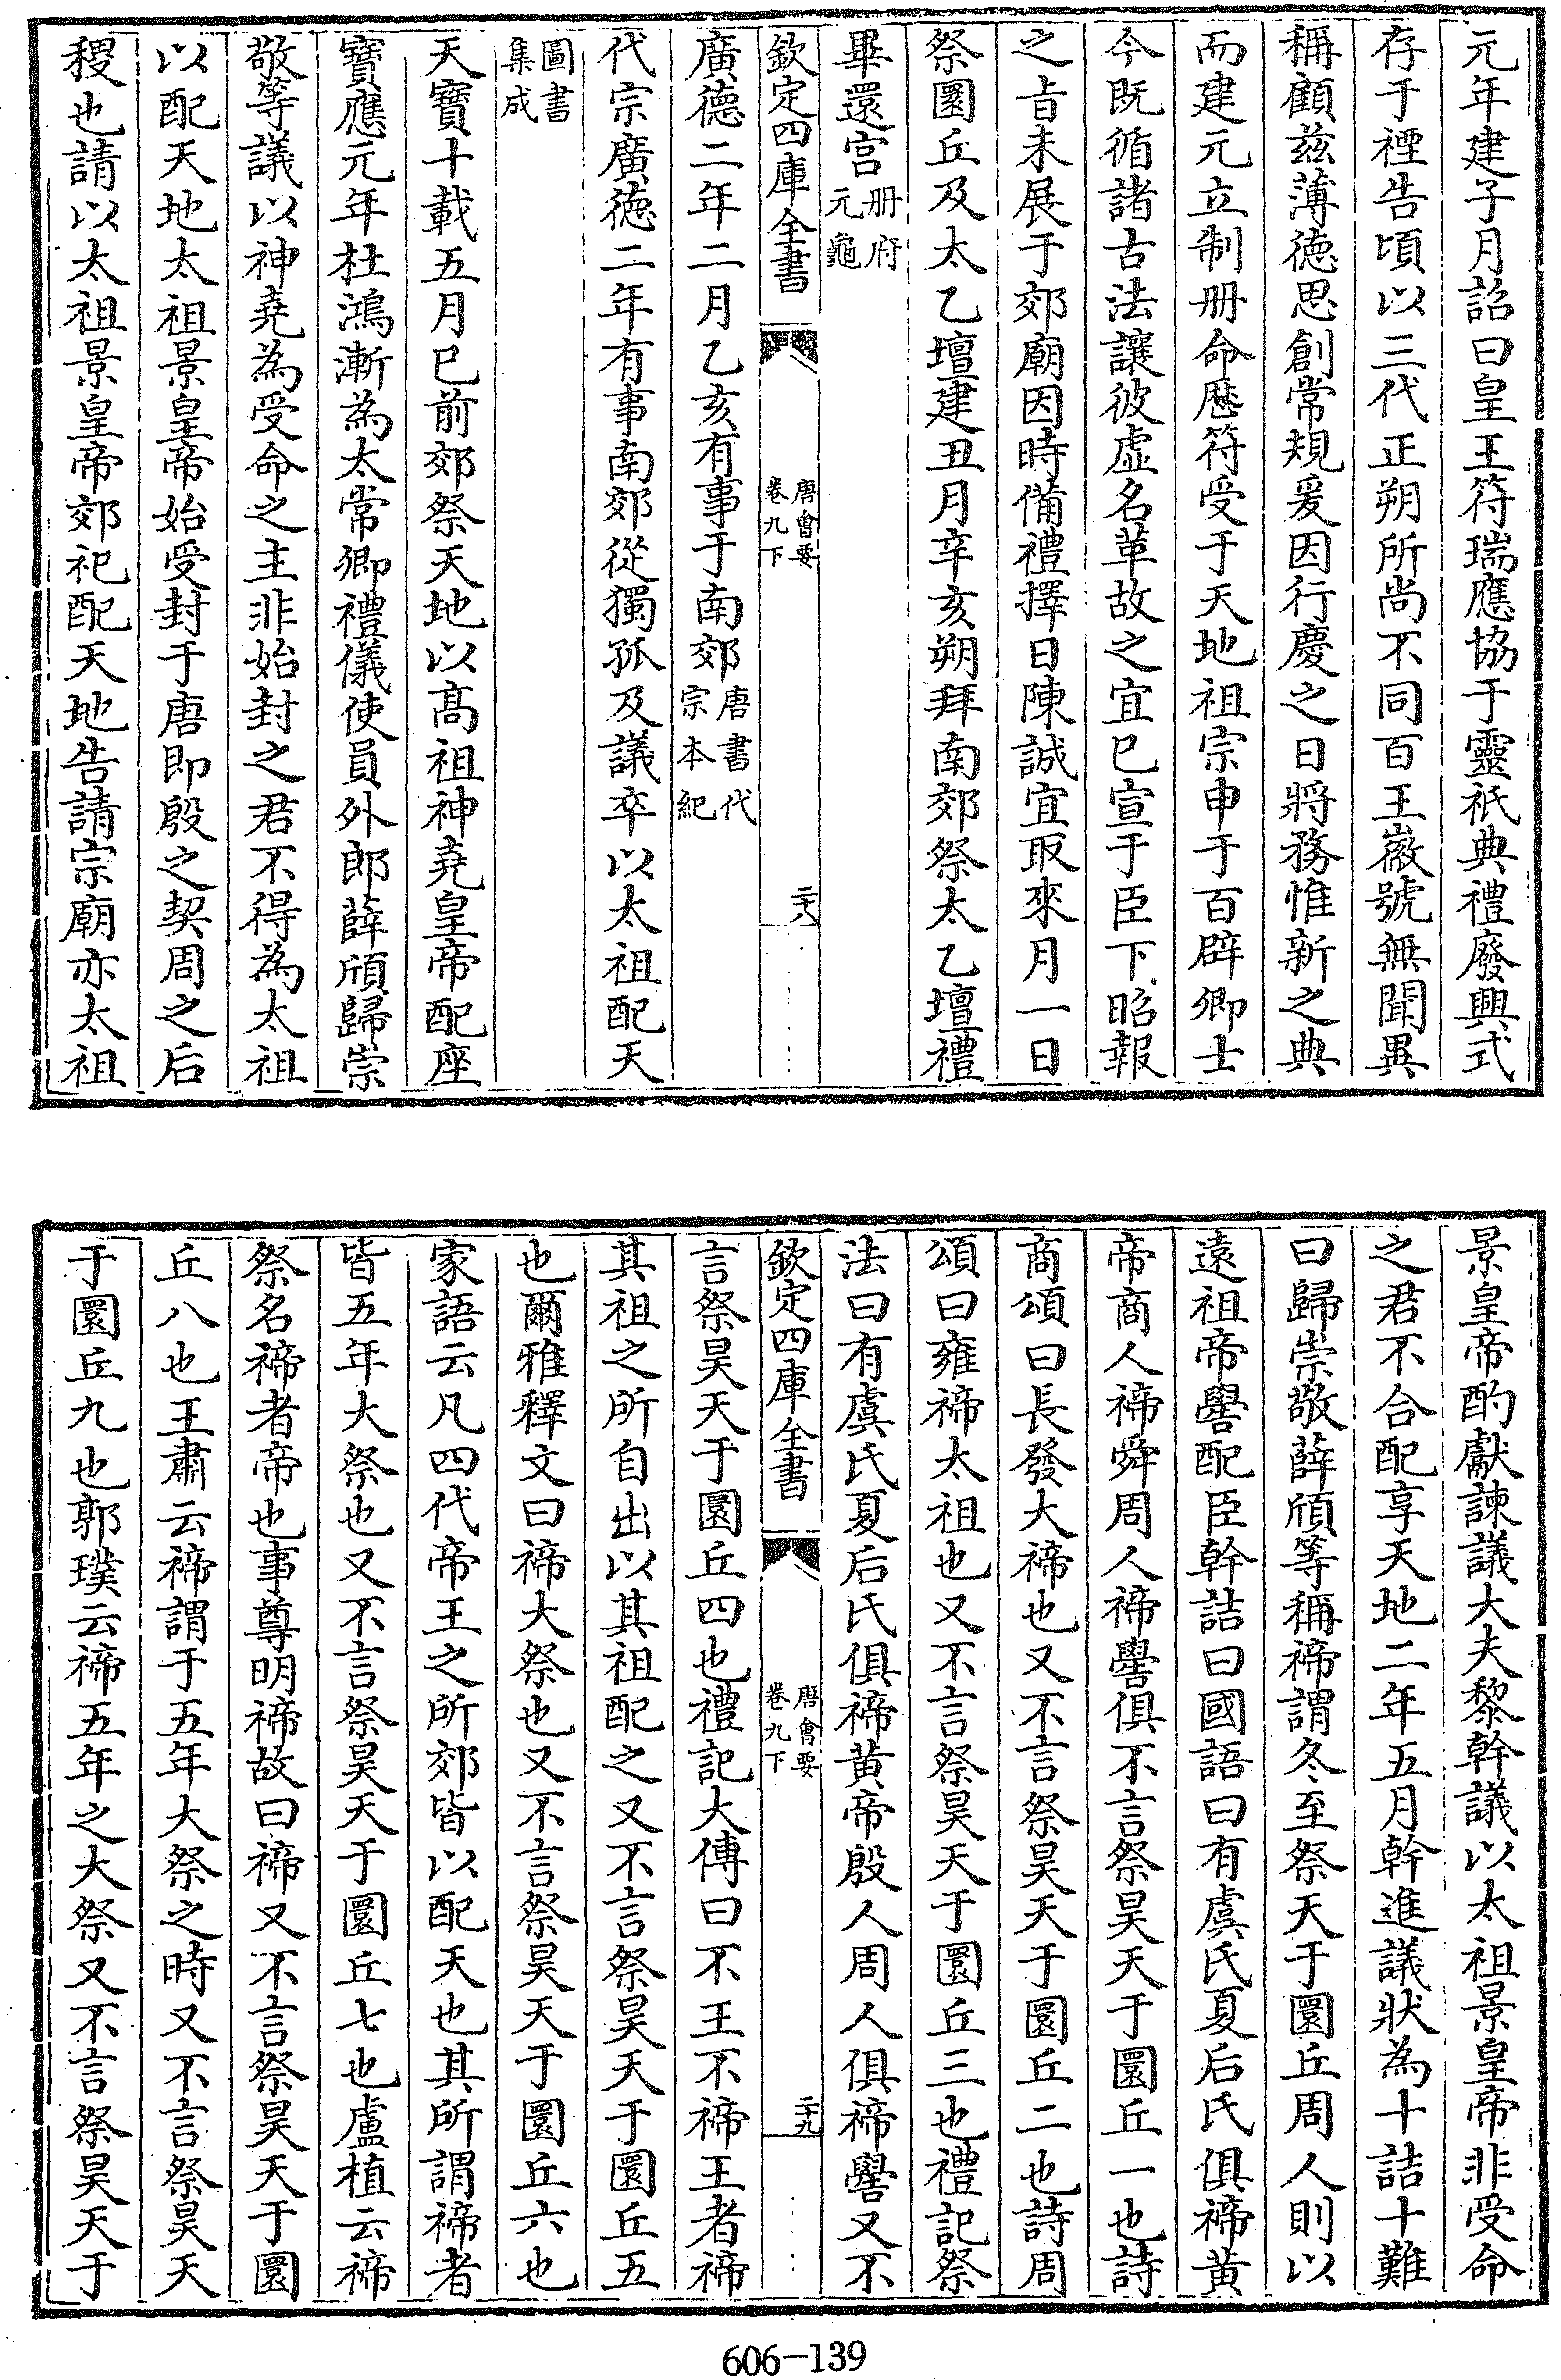 元年建子月詔曰皇王符瑞應協于靈祇典禮廢興式
存于禋告頃以三代正朔所尚不同百王徽號無聞異
稱顧兹薄德思創常規爰因行慶之日將務惟新之典
而建元立制册命歷符受于天地祖宗申于百辟卿士
今既循諸古法讓彼虛名革故之宜已宣于臣下昭報
之㫖未展于郊廟因時備禮擇日陳誠宜取來月一日
祭圜丘及太乙壇建丑月辛亥朔拜南郊祭太乙壇禮
畢還宮册府元龜
欽定四庫全書
唐會要
卷九下
二十八
廣德二年二月乙亥有事于南郊唐書代宗本紀
代宗廣德二年有事南郊從獨孤及議卒以太祖配天
圖書集成
天寶十載五月已前郊祭天地以髙祖神堯皇帝配座
寶應元年杜鴻漸為太常卿禮儀使員外郎薛頎歸崇
敬等議以神堯為受命之主非始封之君不得為太祖
以配天地太祖景皇帝始受封于唐即殷之契周之后
稷也請以太祖景皇帝郊祀配天地告請宗廟亦太祖
景皇帝酌獻諫議大夫黎幹議以太祖景皇帝非受命
之君不合配享天地二年五月幹進議狀為十詰十難
曰歸崇敬薛頎等稱禘謂冬至祭天于圜丘周人則以
遠祖帝嚳配臣幹詰曰國語曰有虞氏夏后氏俱禘黃
帝商人禘舜周人禘嚳俱不言祭昊天于圜丘一也詩
商頌曰長發大禘也又不言祭昊天于圜丘二也詩周
頌曰雍禘太祖也又不言祭昊天于圜丘三也禮記祭
法曰有虞氏夏后氏俱禘黃帝殷人周人俱禘嚳又不
欽定四庫全書
唐會要
卷九下
二十九
言祭昊天于圜丘四也禮記大傳曰不王不禘王者禘
其祖之所自出以其祖配之又不言祭昊天于圜丘五
也爾雅釋文曰禘大祭也又不言祭昊天于圜丘六也
家語云凡四代帝王之所郊皆以配天也其所謂禘者
皆五年大祭也又不言祭昊天于圜丘七也盧植云禘
祭名禘者帝也事尊明禘故曰禘又不言祭昊天于圜
丘八也王肅云禘謂于五年大祭之時又不言祭昊天
于圜丘九也郭璞云禘五年之大祭又不言祭昊天于
606-139